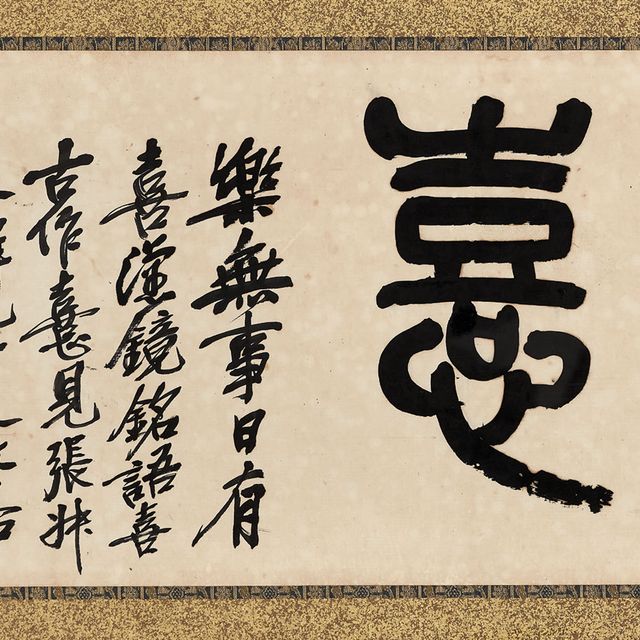 憙
樂無事日有
喜漢鏡銘語喜
古作憙見張叔